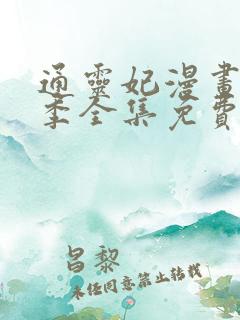 通靈妃漫畫
季全集免費
昌黎
未经同意禁止转载